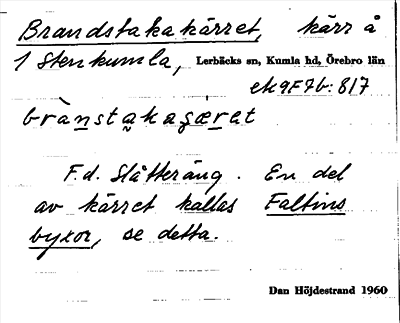 Brandstakakärret, kärr å
1 Stenkumla, Lerbäcks sn, Kumla hd, Örebro län
ek 9F7b: 8/7
brànstakaʂæ̀rət
F.d. Slåtteräng. En del
av kärret kallas Faltins
byxor, se detta.
Dan Höjdestrand 1960